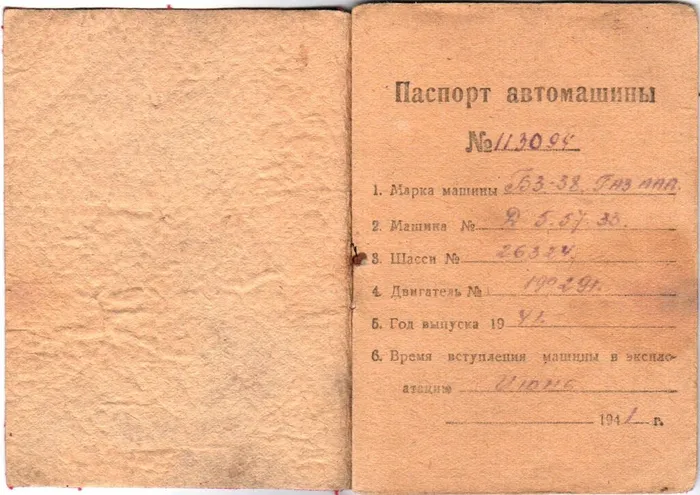 Паспорт автомашины
№ 113094
1. Марка машины БЗ-38 ГАЗ ААА.
2. Машина № Д 5.57.33.
3. Шасси № 26324
4. Двигатель №
5. Год выпуска 19 41.
6. Время вступления машины в экспло-
атацию Июнь
1941 г.